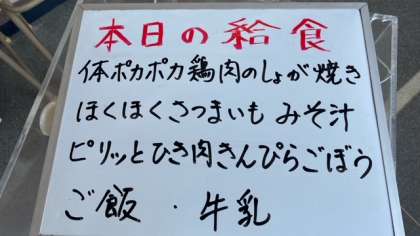 本日の給食
体ポカポカ鶏肉のしょが焼き
ほくほくさつまいも みそ汁
ピリッとひき肉きんぴらごぼう
ご飯 ・ 牛乳